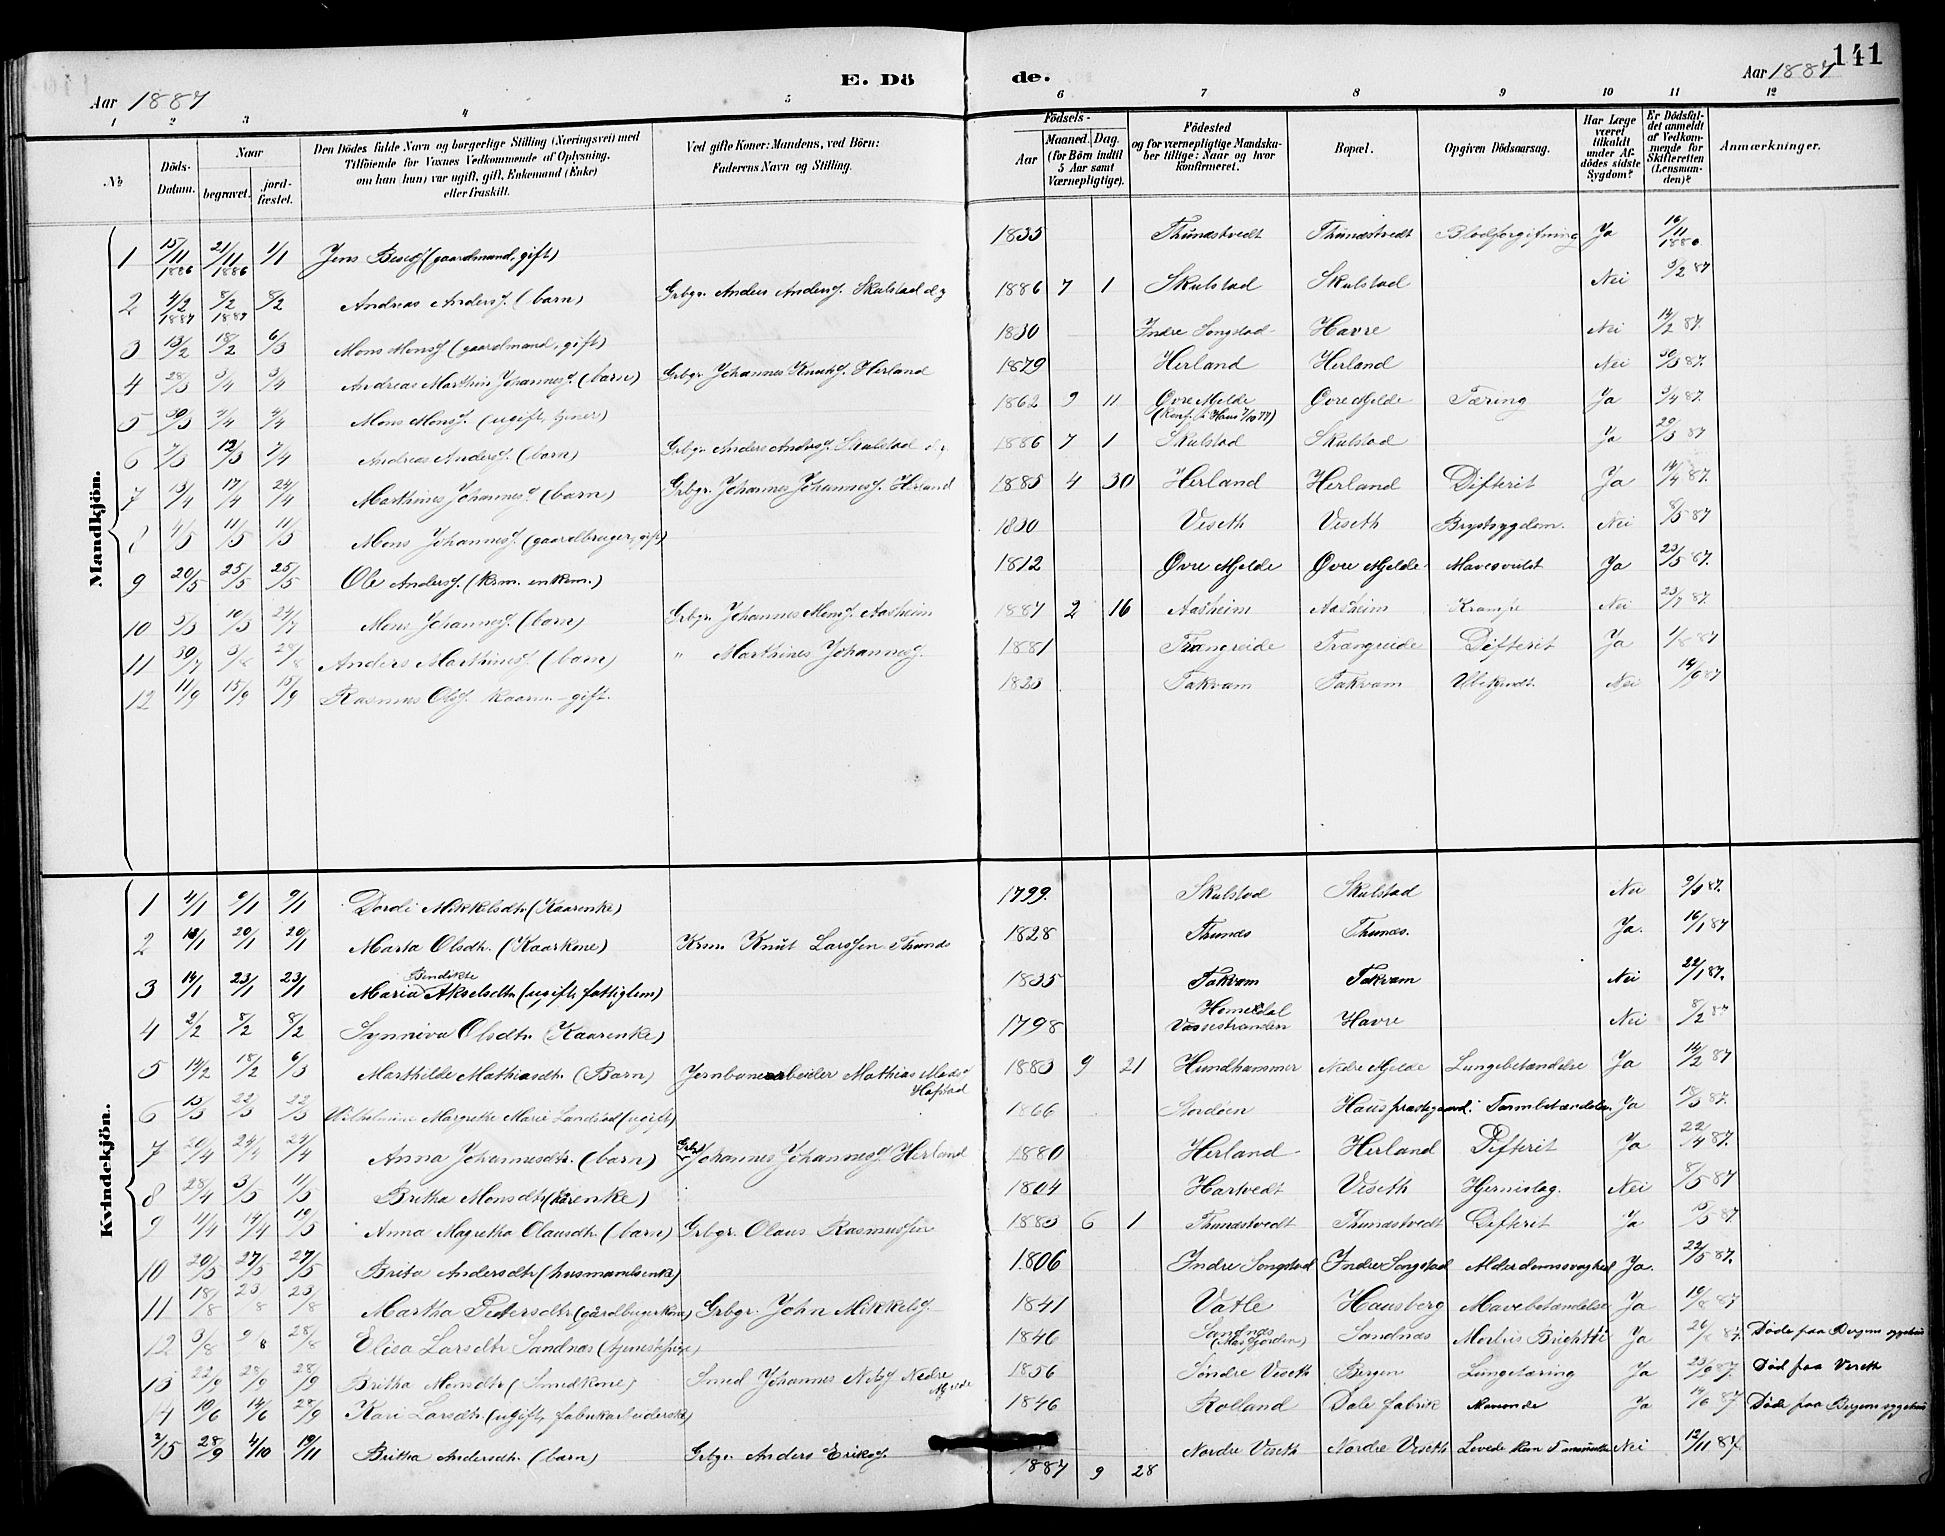 141
E. Dö de.
Aar 1887
Aar 1887
1 2 3 4 5 6 7 8 9 10 11 12
No
Döds-Datum.
Naar
begravet.
jord-fæstet.
Den Dödes fulde Navn og borgerlige Stilling (Næringsvei) med
Tilföiende for Voxnes Vedkommende af Oplysning.
om han (hun) var ugift, gift, Enkemand (Enke)
eller fraskilt.
Ved gifte Koner: Mandens, ved Börn:
Faderens Navn og Stilling.
Födsels-
Aar
Maaned. Dag.
(for Börn indtil
5 Aar samt
Værnepligtige).
Födested
og for værnepligtige Mandska-
ber tillige: Naar og hvor
konfirmeret.
Bopæl.
Opgiven Dödsaarsag.
Har Læge
været
tilkaldt
under Af-
dödes sidste
Sygdom?
Er Dödsfal-
det anmeldt
af Vedkom-
mende for
Skifteretten
(Lensman-
den)?
Anmærkninger.
Mandkjön.
1 15/11 1886 21/11 1886 1/1 Jens (gaardmand, gift) 1835 Thunæstvedt Thunæstvedt Blodforgiftning Ja 16/11 1886
2 4/2 1887 8/2 1887 8/2 Andreas Anders. (barn) Grbgr. Anders Anders. Skulstad 1886 7 1 Skulstad Skulstad Nei 5/2 87
3 13/2 18/2 6/3 Mons Mons. (gaardmand, gift) 1830 Indre Songstad Havre Nei 14/2 87.
4 28/3 3/4 3/4 Andreas Marthin Johannes. (barn) Grbgr. Johannes Knuts. Herland 1879 Herland Herland Nei 30/3 87.
5 30/3 4/4 Mons Mons. (ugift, tjener) 1862 9 11 Øvre Mjelde Øvre Mjelde Tæring Ja 3/4 87.
(Konf. i Haus 7/10 77)
6 12/3 Andreas Anders. (barn) Grbgr. Anders Anders. Skulstad 1886 7 1 Skulstad Skulstad Ja 87
7 13/4 17/4 24/4 Marthines Johannes. (barn) Grbgr. Johannes Johannes. Herland 1885 4 30 Herland Herland Difterit Ja 14/4 87.
8 4/5 11/5 11/5 Mons Johannes. (gaardbruger, gift) 1830 Viseth Viseth Brystsygdom. Nei 8/5 87
9 20/5 25/5 25/5 Ole Anders. (krm. enkem.) 1812 Øvre Mjelde Øvre Mjelde Mavesvulst Ja 23/5 87.
10 10/3 24/7 Mons Johannes. (barn) Grbgr. Johannes Mons. Aasheim 1887 2 16 Aasheim Aasheim Krampe Nei 23/7 87.
11 30/7 3/8 28/8 Anders Marthines. (barn) " Marthines Johannes. 1881 Trængreide Trængreide Difterit Ja 1/8 87
12 11/9 15/9 15/9 Rasmus Ols. Kaarm. gift. 1823 Takvam Takvam Ubekendt. Nei 87
Kvindekjön.
1 4/1 9/1 9/1 Dordi Mikkelsdtr. (Kaarenke) 1799. Skulstad Skulstad Nei 9/1 87.
2 13/1 20/1 20/1 Marta Olsdtr. (Kaarkone) Krm. Knut Larssen Thunæs 1828 Thunæs Thunæs. Ja. 16/1 87
3 14/1 23/1 23/1 Maria Bendikte Akselsdtr (ugift, fattiglem) 1835 Takvam Takvam Nei 22/1 87.
4 2/2 8/2 8/2 Synneva Olsdtr (Kaarenke) 1798 Homedal Vossestranden Havre Nei 8/2 87
5 14/2 18/2 6/3 Marthilde Mathiasdtr. (Barn) Jernbanearbeider Mathias Mads. Hafstad 1883 9 21 Hundhammer Nedre Mjelde Lungebetændelse Ja 14/2 87
6 22/3 22/3 Wilhelmine Margrethe Marie Landstad (ugift) 1866 Stordøen Haus prestegaard. Tarmbetændelse. Ja 87.
7 20/4 24/4 24/4 Anna Johannesdtr. (barn) Grbgr. Johannes Johannes. Herland 1880 Herland Herland Difterit Ja 22/4 87.
8 28/4 3/5 11/5 Britha Monsdtr (Kårenke) 1804 Hartvedt Viseth Hjerneslag. Nei 8/5 87
9 14/4 19/5 Anna Magretha Olausdtr. (barn) Grbgr. Olaus Rasmussen 1883 6 1 Thunæstvedt Thunæstvedt Difterit Ja 87.
10 20/5 27/5 27/5 Brita Andersdtr (husmandsenke) 1806 Indre Songstad Indre Songstad Alderdomssvaghed Ja. 22/5 87.
11 18/8 23/8 23/8 Martha Pedersdtr. (gårdbrugerkone) Grbgr. John Mikkels. 1841 Vatle Hausberg Mavebetændelse Ja 19/8 87
12 3/8 9/8 28/8 Elisa Larsdtr Sandnæs (tjenestepige) 1846 Sandnæs (Masfjorden) Sandnæs Morbus Brightii Ja 26/8 87. Døde paa Bergens sygehus
13 22/9 28/9 28/9 Britha Monsdtr. (Smedkone) Smed Johannes Nils. Nedre Mjelde 1856 Søndre Viseth Bergen Lungetæring Ja 23/9 87. Død paa Viseth
14 10/6 14/6 28/9 Kari Larsdtr. (ugift, fabrikarbeiderske) 1846 Rolland Dale fabrik Ja 14/6 87 Døde paa Bergens sygehus
15 28/9 4/10 19/11 Britha Andersdtr. (barn) Grbgr. Anders Eriks. 1887 9 28 Nordre Viseth Nordre Viseth Levede kun Nei 12/11 87.